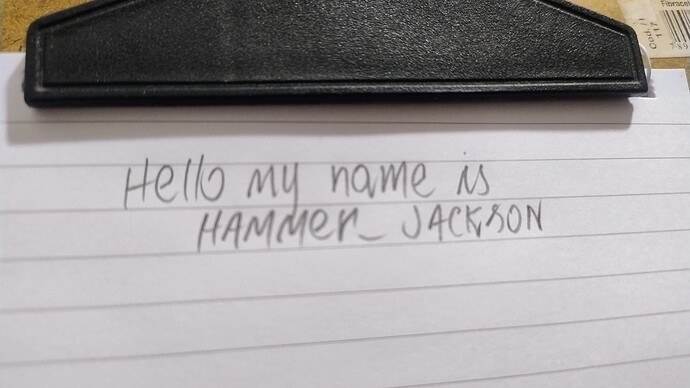 Hello my name is
HAMMer_ JACKSON
Fibracel
Cod.:
117
789